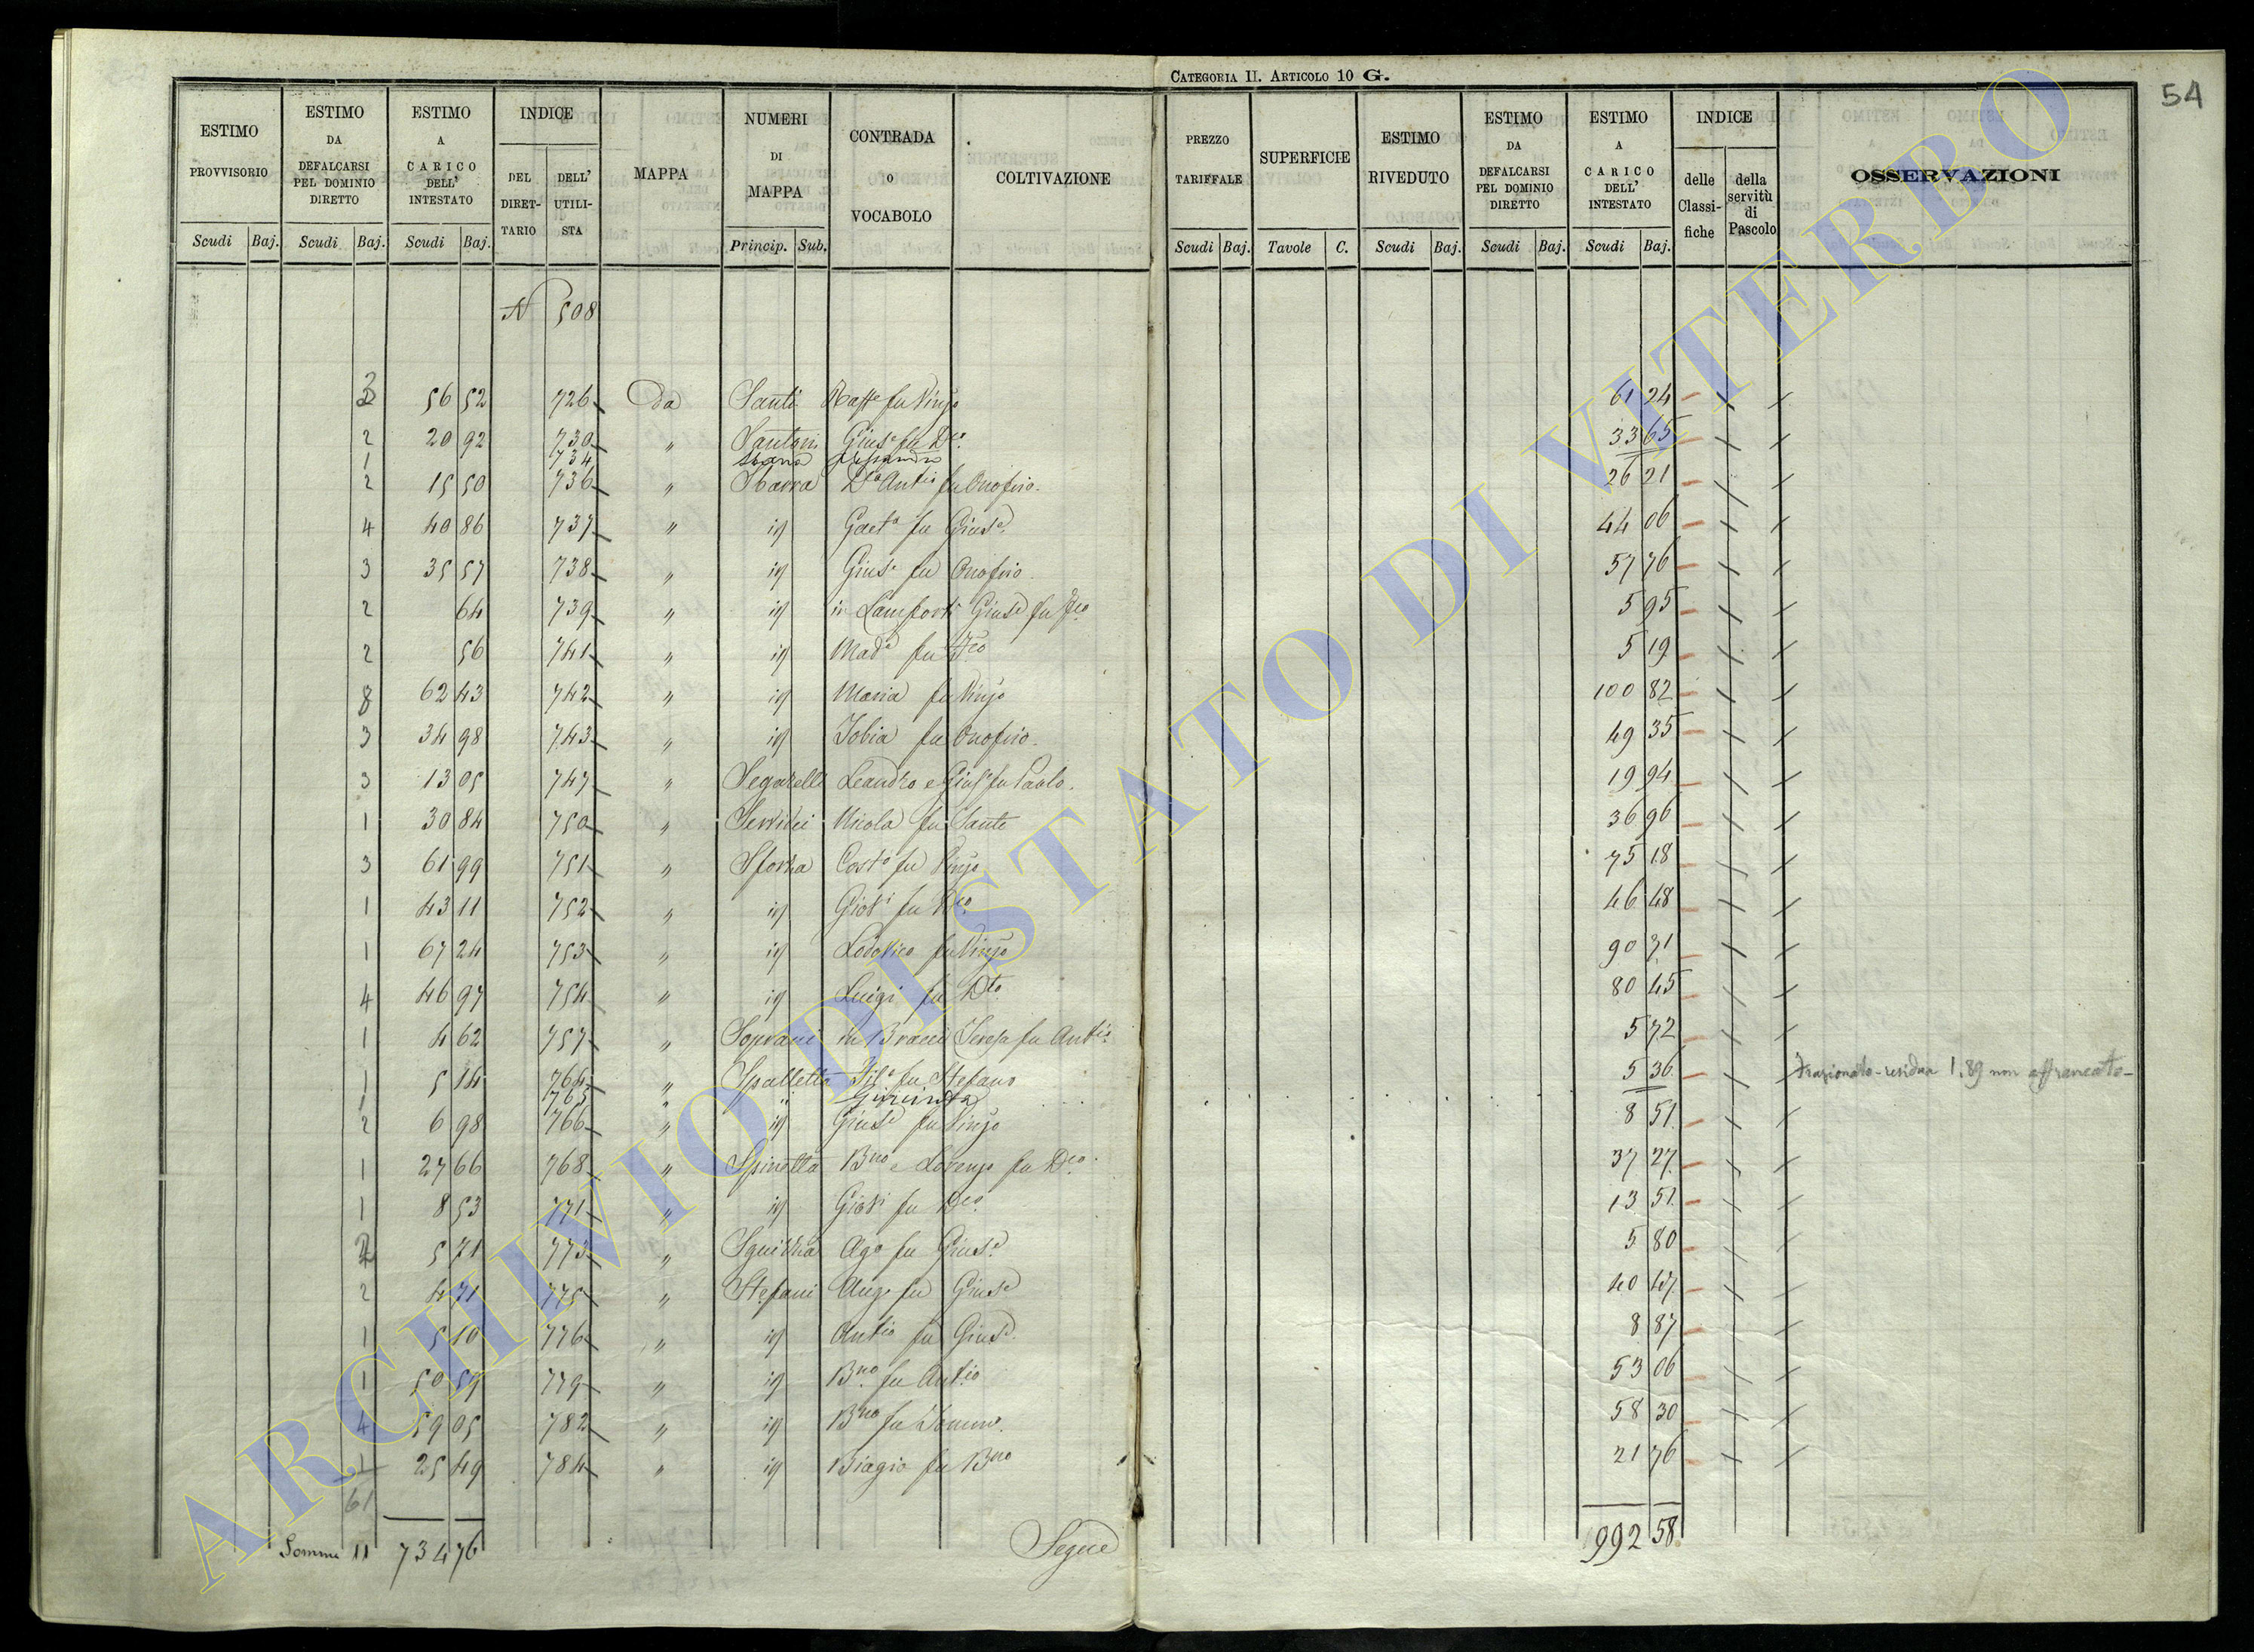 CATEGORIA II. ARTICOLO 10 G.
54
ESTIMO PROVVISORIO Scudi Baj.
ESTIMO DA DEFALCARSI PEL DOMINIO DIRETTO Scudi Baj.
ESTIMO A CARICO DELL' INTESTATO Scudi Baj.
INDICE DEL DIRET-TARIO DELL' UTILI-STA
MAPPA
NUMERI DI MAPPA Princip. Sub.
CONTRADA O VOCABOLO
COLTIVAZIONE
PREZZO TARIFFALE Scudi Baj.
SUPERFICIE Tavole C.
ESTIMO RIVEDUTO Scudi Baj.
ESTIMO DA DEFALCARSI PEL DOMINIO DIRETTO Scudi Baj.
ESTIMO A CARICO DELL' INTESTATO Scudi Baj.
INDICE delle Classi-fiche della servitù di Pascolo
OSSERVAZIONI
N 508
3 56 52 726 Da Santi fu Vinzo 61 24
2 20 92 730 " Santoni Giuse fu Dco 33 65
1 734
2 15 50 736 " Sbarra Antio fu Onofrio 26 21
4 40 86 737 " id Gaeta fu Giuse 44 06
3 35 57 738 " id Giuse fu Onofrio 57 76
2 64 739 " id in Lamforti Giuse fu 5 95
2 56 741 " id Madа fu 5 19
8 62 43 742 " id Maria fu Vinzo 100 82
3 34 98 743 " id Tobia fu Onofrio 49 35
3 13 05 747 " Segarelli Leandro e Giuse fu Paolo 19 94
1 30 84 750 " Nicola fu Sante 36 96
3 61 99 751 " Sforza Costo fu Vinzo 75 18
1 43 11 752 " id Giovi fu Dco 46 48
1 67 24 753 " id Lodovico fu Vinzo 90 31
4 46 97 754 " id Luigi fu Dto 80 45
1 4 62 757 " Soprani in Bracci Teresa fu Antio 5 72
1 5 14 764 " Spalletta fu Stefano 5 36 frazionato - residua 1.89 non affrancato -
1 765 " "
2 6 98 766 " id Giuse fu Vinzo 8 51
1 27 66 768 " Spinetta Bno e Lorenzo fu Dco 37 27
1 8 53 771 " id Giovi fu Dco 13 51
2 5 71 773 " Squizza Ago fu Giuse 5 80
2 4 71 775 " Stefani Ango fu Giuse 40 47
1 5 10 776 " id Antio fu Giuse 8 87
1 50 57 779 " id Bno fu Antio 53 06
4 59 05 782 " id Bno fu 58 30
1 25 49 784 " id Biagio fu Bno 21 76
61
Somma 11 734 76 Segue 992 58
ARCHIVIO DI STATO DI VITERBO